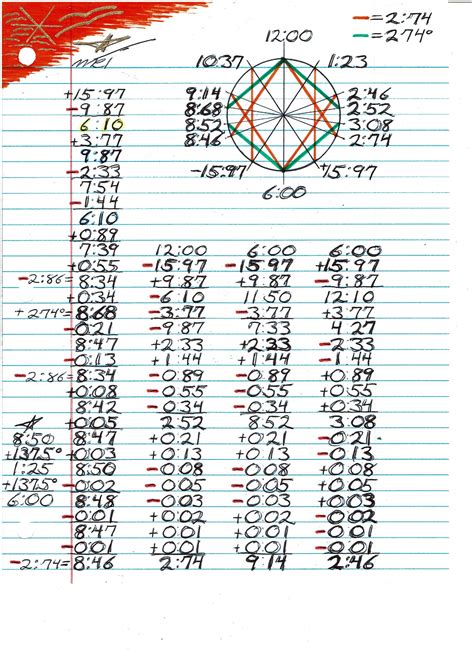 ▬=2:74
12:00 ▬=274°
mei 10:37 1:23
+15:97 9:14 2:46
-9:87 8:68 2:52
6:10 8:52 3:08
+3:77 8:46 2:74
9:87
-2:33 -15:97 +15:97
7:54 6:00
-1:44
6:10
+0:89
7:39 12:00 6:00 6:00
+0:55 -15:97 -15:97 +15:97
-2:86= 8:34 +9:87 +9:87 -9:87
+0:34 -6:10 11:50 12:10
+274°= 8:68 -3:77 -3:77 +3:77
-0:21 -9:87 7:33 4:27
8:47 +2:33 +2:33 -2:33
-0:13 +1:44 +1:44 -1:44
-2:86= 8:34 -0:89 -0:89 +0:89
+0:08 -0:55 -0:55 +0:55
8:42 -0:34 -0:34 +0:34
+0:05 2:52 8:52 3:08
8:50 8:47 +0:21 +0:21 -0:21
+137.5° +0:03 +0:13 +0:13 -0:13
1:25 8:50 -0:08 -0:08 +0:08
+137.5° -0:02 -0:05 -0:05 +0:05
6:00 8:48 -0:03 -0:03 +0:03
-0:01 +0:02 +0:02 -0:02
8:47 +0:01 +0:01 -0:01
-0:01 +0:01 +0:01 -0:01
-2:74= 8:46 2:74 9:14 2:46